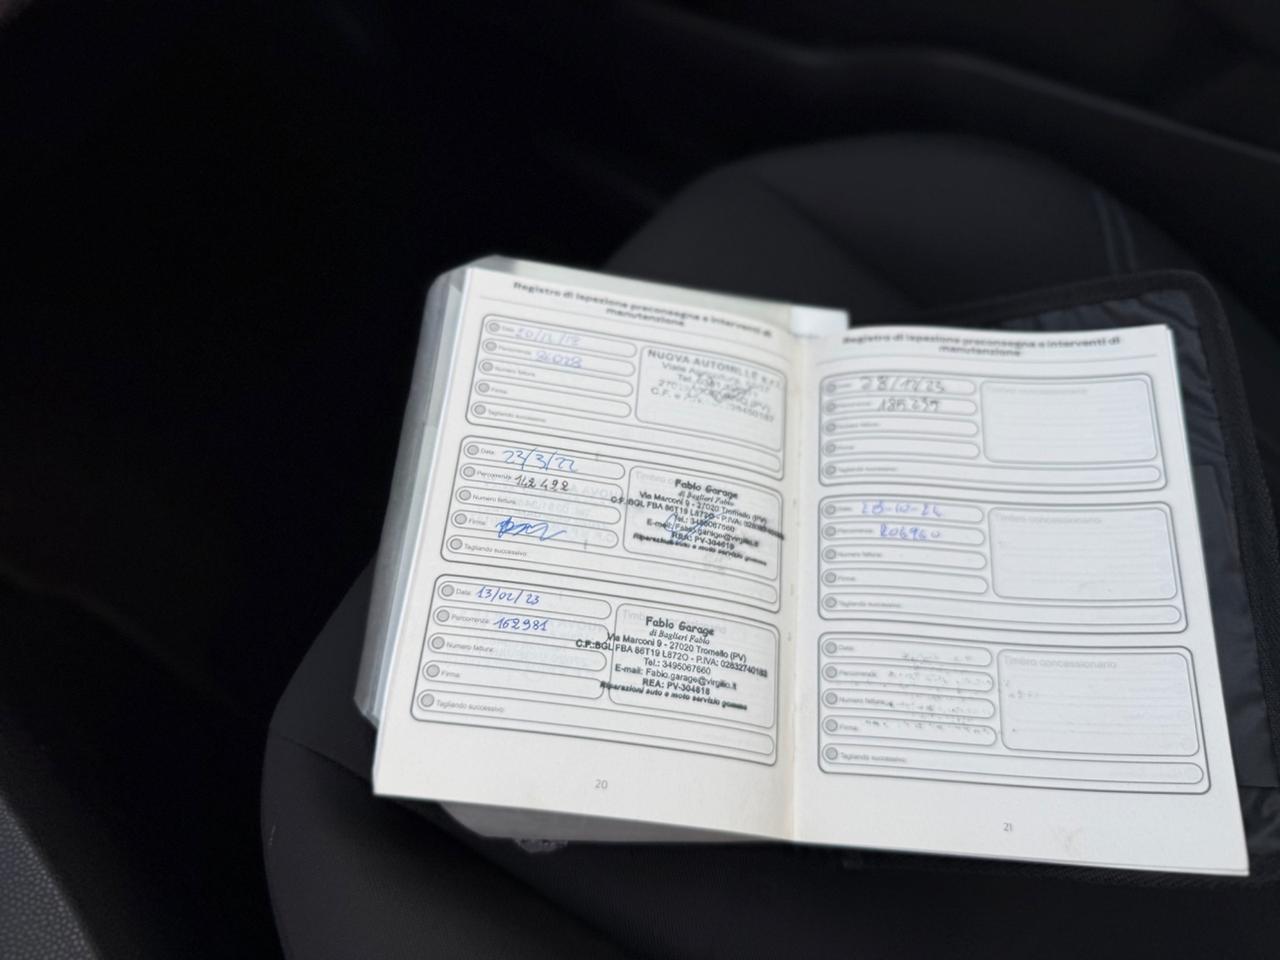 Registro di ispezione preconsegna e interventi di
manutenzione
Data:
Percorrenza:
Numero fattura:
Firma:
Tagliando successivo:
NUOVA AUTOMILLE s.r.l.
Tel.
C.F. e
Data: 23/3/22
Percorrenza: 142492
Numero fattura:
Firma:
Tagliando successivo:
Timbro
Fabio Garage
di Baglieri Fabio
Via Marconi 9 - 27020 Tromello (PV)
C.F.:BGL FBA 86T19 L872O - P.IVA: 02832740183
Tel.: 3495067660
E-mail: Fabio.garage@virgilio.it
REA: PV-304818
Riparazioni auto e moto servizio gomme
Data: 13/02/23
Percorrenza: 162981
Numero fattura:
Firma:
Tagliando successivo:
Fabio Garage
di Baglieri Fabio
Via Marconi 9 - 27020 Tromello (PV)
C.F.:BGL FBA 86T19 L872O - P.IVA: 02832740183
Tel.: 3495067660
E-mail: Fabio.garage@virgilio.it
REA: PV-304818
Riparazioni auto e moto servizio gomme
20
Registro di ispezione preconsegna e interventi di
manutenzione
Data: 28/11/23
Percorrenza:
Numero fattura:
Firma:
Tagliando successivo:
Timbro concessionario
Data:
Percorrenza: 206960
Numero fattura:
Firma:
Tagliando successivo:
Timbro concessionario
Data:
Percorrenza:
Numero fattura:
Firma:
Tagliando successivo:
Timbro concessionario
21